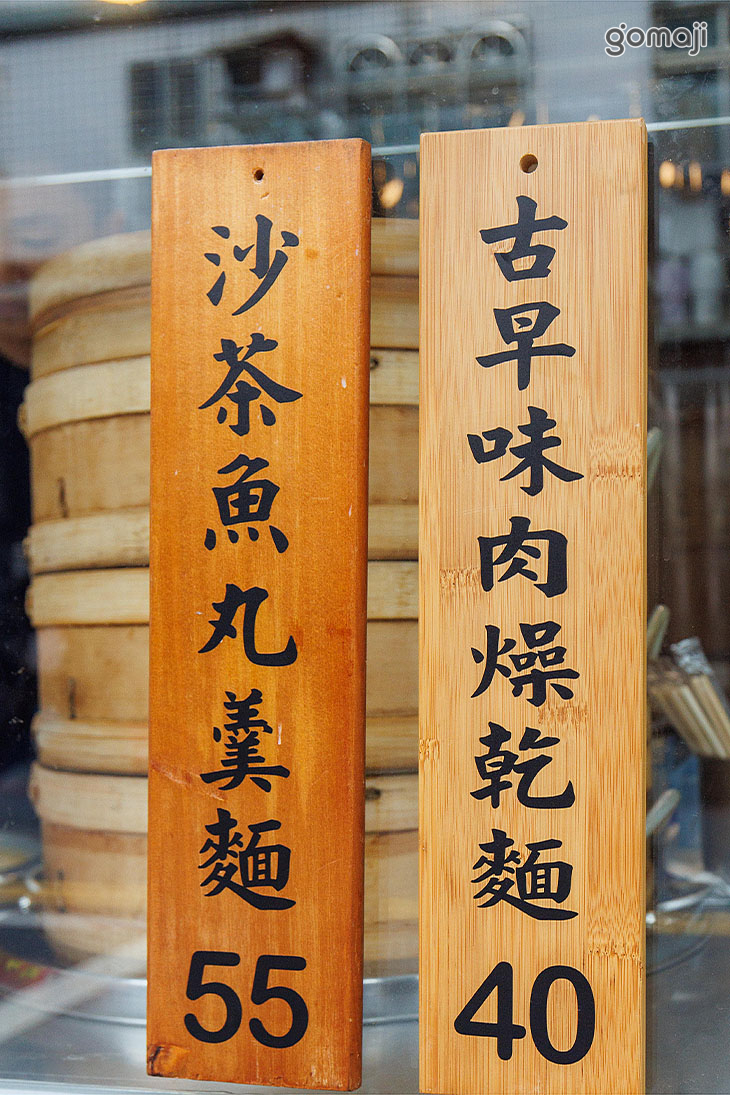 gomaji
沙茶魚丸羹麵
55
古早味肉燥乾麵
40